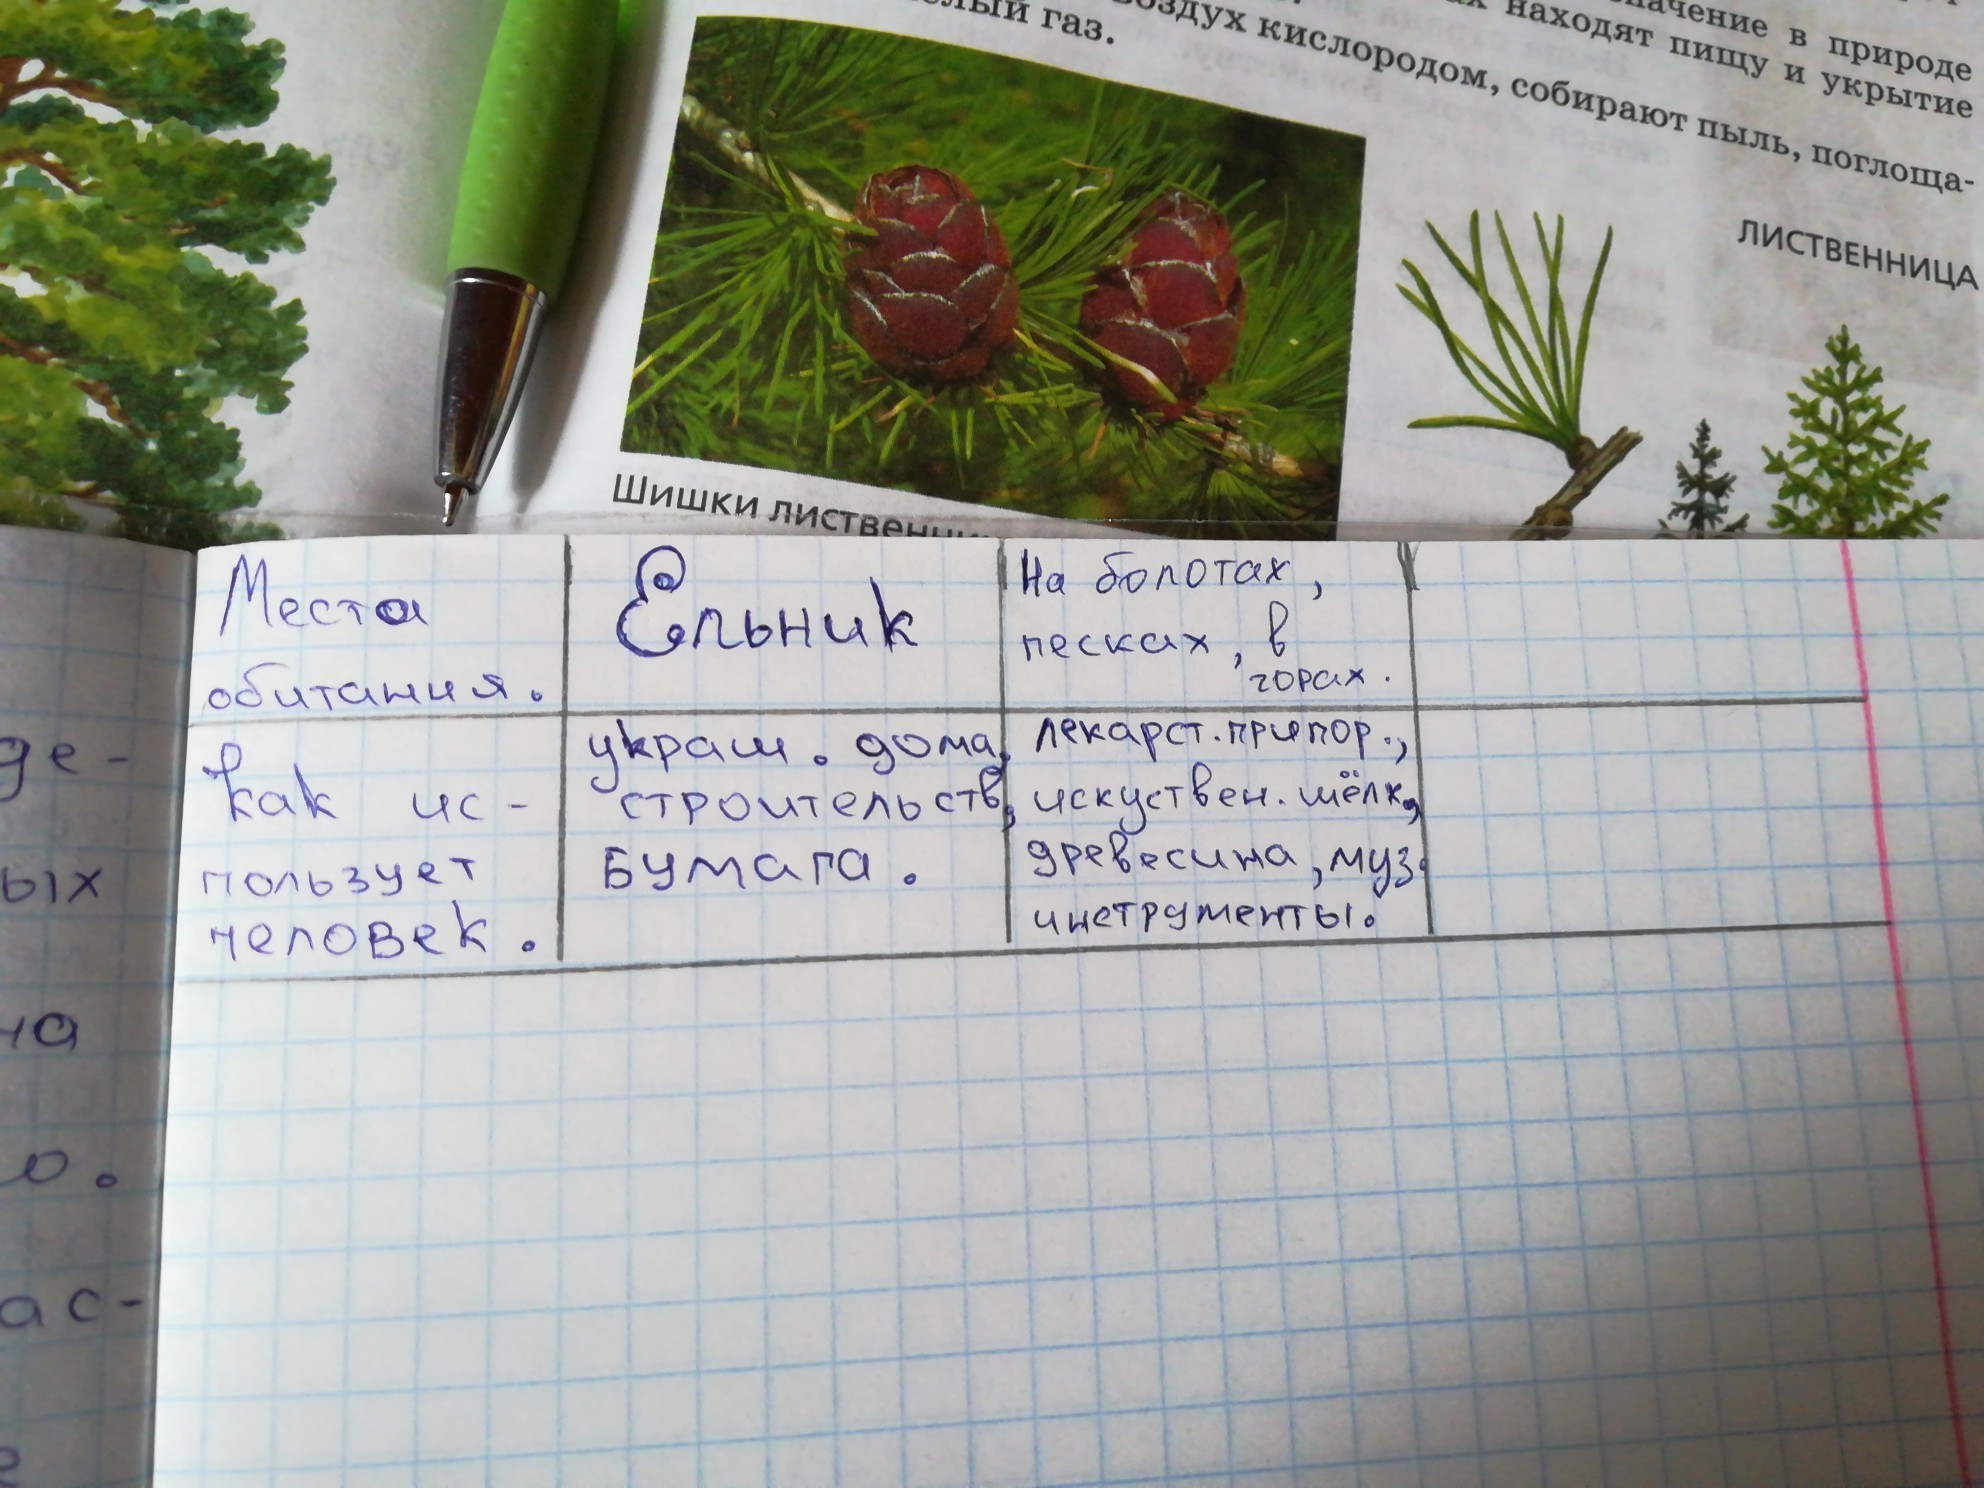 значение в природе
находят пищу и укрытие
воздух кислородом, собирают пыль, поглоща-
газ.
ЛИСТВЕННИЦА
Шишки лиственни
Места
обитания.
Ельник
На болотах,
песках, в
горах.
как ис-
пользует
человек.
украш. дома,
строительств,
бумага.
лекарст. припор.,
искуствен. шёлк,
древесина, муз.
инструменты.
де-
ых
на
о.
ас-